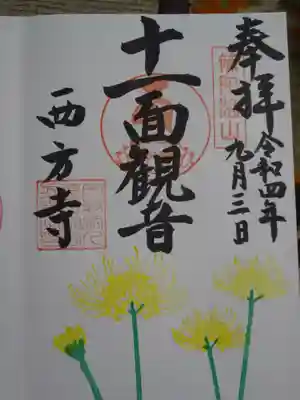 奉拝
令和四年
九月三日
十一面観音
西方寺